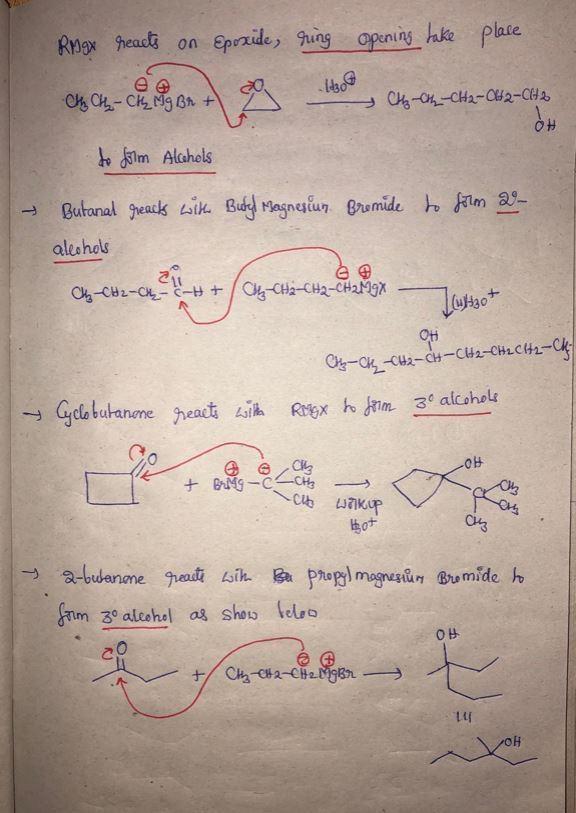 RMgx reacts on Epoxide, ring opening take place
CH3 CH2 - CH2 Mg Br + O H3O⊕ CH3-CH2-CH2-CH2-CH2
⊖ ⊕
OH
to form Alcohols
→ Butanal reacts with Butyl Magnesium Bromide to form 2°-
alcohols
CH3-CH2-CH2-C-H + CH3-CH2-CH2-CH2MgX
O
⊖ ⊕
(u)H3O+
OH
CH3-CH2-CH2-CH-CH2-CH2CH2-CH3
→ Cyclobutanone reacts with RMgx to form 3° alcohols
O + BrMg-C CH3 CH3 CH3
⊕ ⊖
workup
H3O+
OH
C CH3 CH3 CH3
→ 2-butanone reacts with propylmagnesium Bromide to
form 3° alcohol as show below
O + CH3-CH2-CH2MgBr
⊖ ⊕
OH
OH